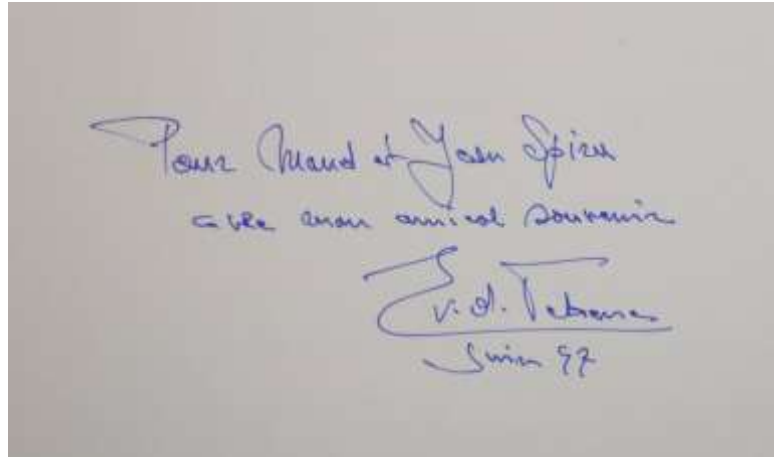 Pour Maud et Jean Spiru
avec mon amical souvenir
juin 97